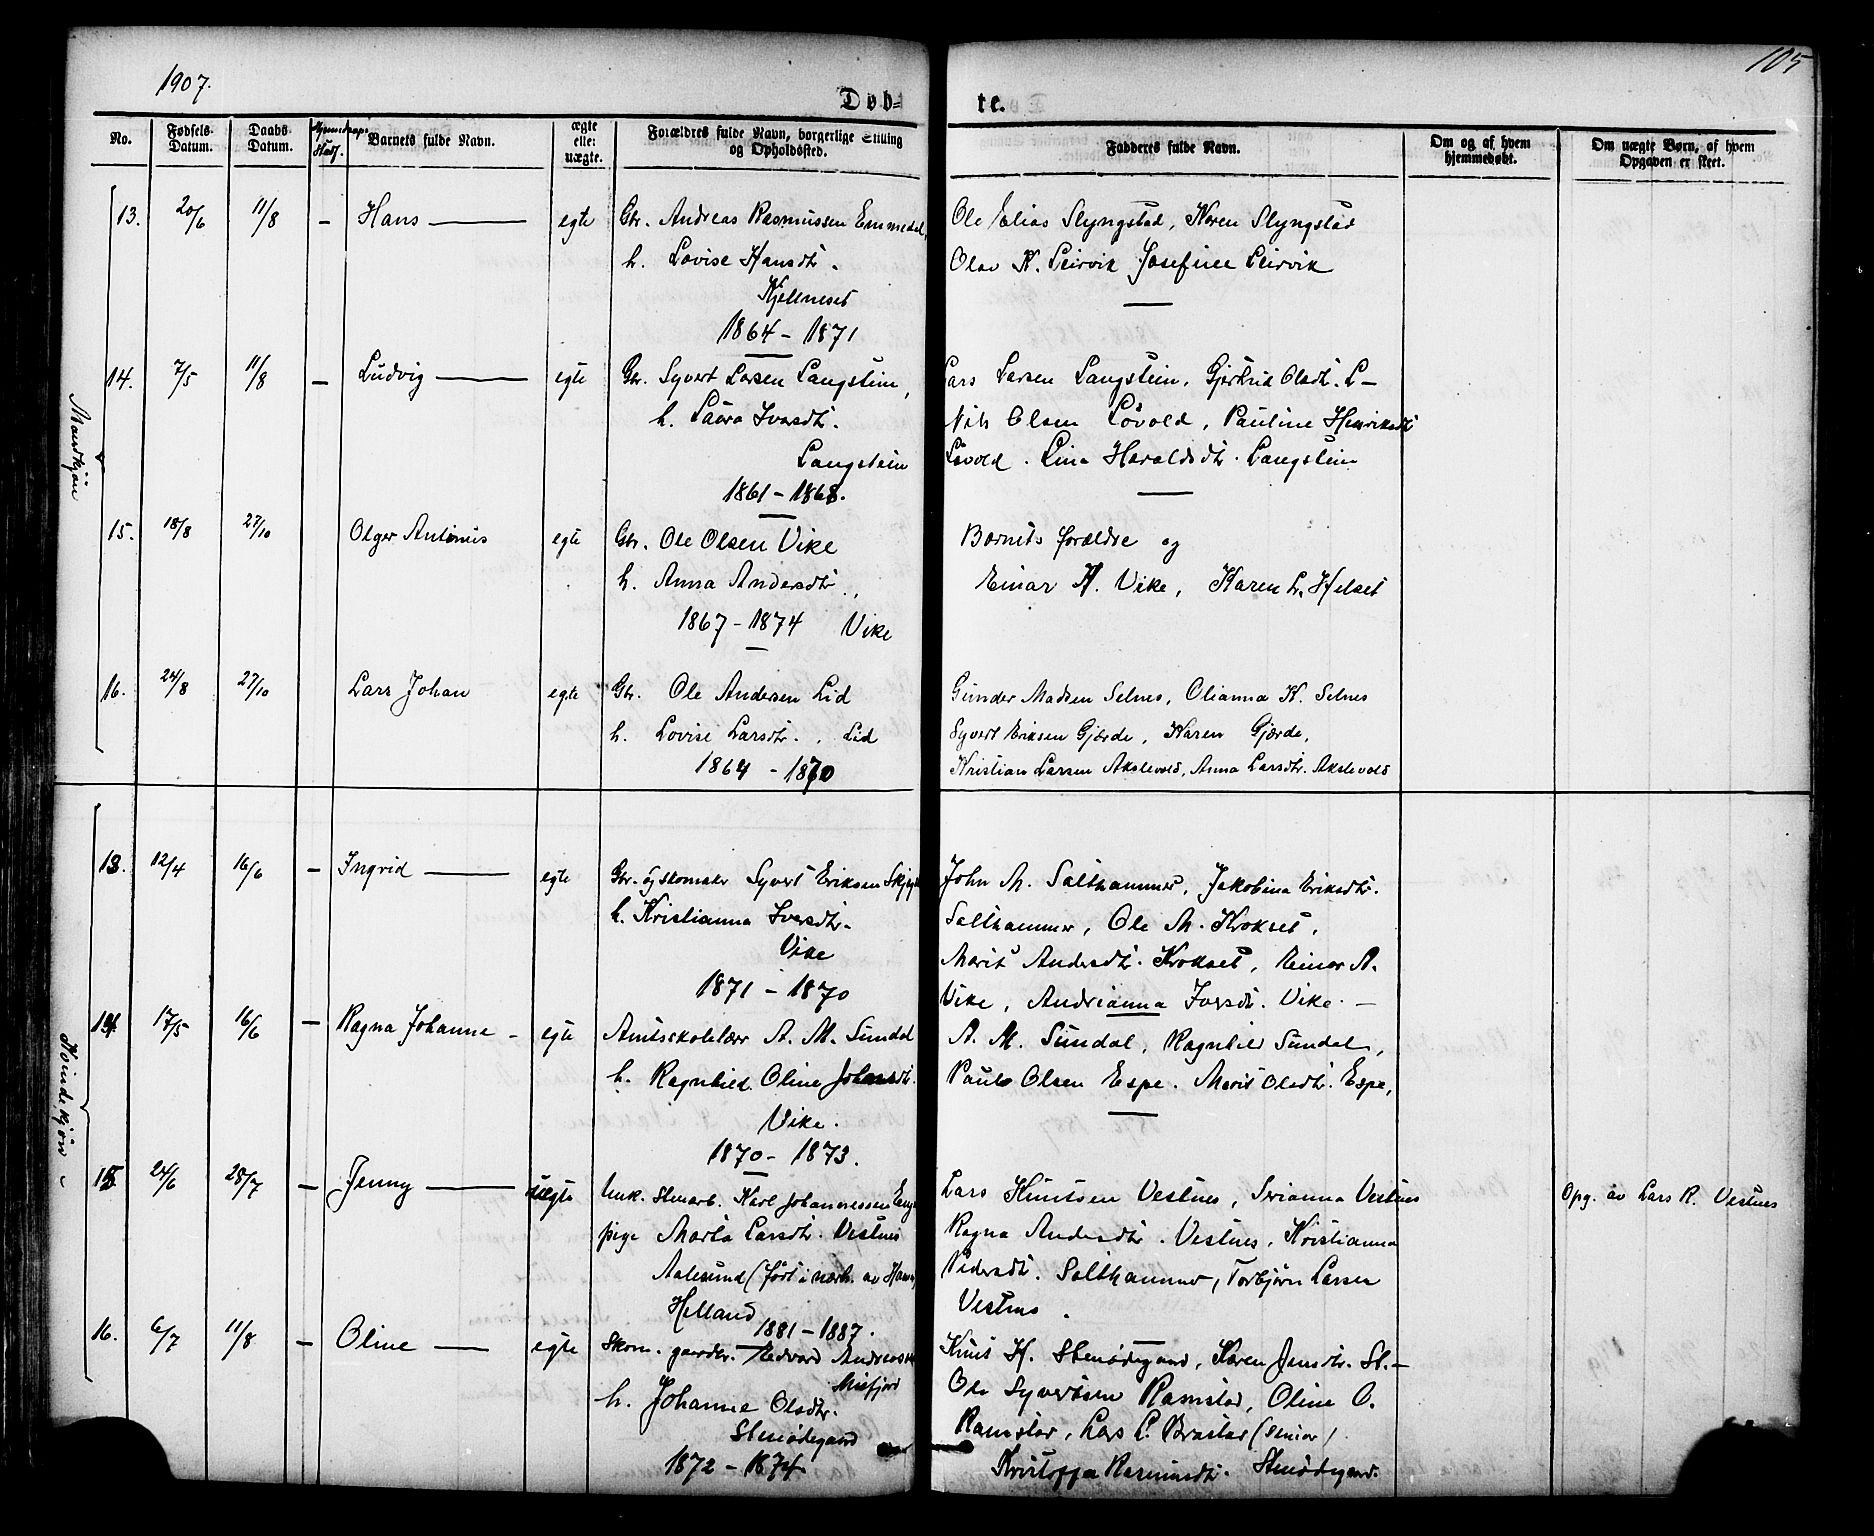 1907.
105
Døb-
te.
No.
Fødsels-Datum.
Daabs-Datum.
Barnets fulde Navn.
ægte eller uægte.
Forældres fulde Navn, borgerlige Stilling og Opholdssted.
Faddernes fulde Navn.
Om og af hvem hjemmedøbt.
Om uægte Børn, af hvem Opgaven er skeet.
Mandkjøn
13. 20/6 11/8 – Hans — egte Gbr. Andreas Rasmussen Emmedal,
h. Lovise Hansdtr.
Kjellmeset
1864 – 1871
Ole Elias Slyngstad, Karen Slyngstad
Olav K. Leirvik Josefine Leirvik
14. 7/5 11/8 – Ludvig — egte Gbr. Syvert Larsen Langstein,
h. Laura Iversdtr.
Langstein
1861 – 1868.
Lars Larsen Langstein, Gjertrud Olsdtr. L–
Nils Olsen Løvold, Pauline Henriksdtr
Løvold. Lina Haraldsdtr. Langstein
15. 18/8 27/10 Olger Antonius egte Gbr. Ole Olsen Vike
h. Anna Andersdtr.,
1867 – 1874 Vike
Barnets forældre og
Einar K. Vike, Karen L. Helset
16. 24/8 27/10 Lars Johan egte Gbr. Ole Andersen Lid
h. Lovise Larsdtr., Lid
1864 – 1870
Gunder Madsen Selnes, Olianna K. Selnes
Syvert Eriksen Gjærde, Karen Gjærde,
Kristian Larsen Akslevold, Anna Larsdtr. Akslevold
Kvindekjøn
13. 12/4 16/6 – Ingrid — egte Gbr. og skomakr Syvert Eriksen
h. Kristianna Iversdtr.
Vike
1871 – 1870
John M. Salthammer, Jakobina Eriksdtr.
Salthammer, Ole M. Krokset,
Marit Andersdtr. Krokset, Einar A.
Vike, Andrianna Iversdt. Vike. –
14. 17/5 16/6 – Ragna Johanne – egte Amtsskolelærer A. M. Sundal
h. Ragnhild Oline Johansdtr.
Vike.
1870 – 1873.
A. M. Sundal, Ragnhild Sundal,
Paul Olsen Espe. Marit Olsdtr. Espe,
15. 24/6 28/7 – Jenny — uægte Unk. Stenarb. Karl Johannessen
pige Marta Larsdtr. Vestnes
Aalesund (født i nærh. av
Helland
1881 – 1887.
Lars Knutsen Vestnes, Serianna Vestnes
Ragna Andersdtr. Vestnes, Kristianna
Pedersdt. Salthammer, Torbjørn Larsen
Vestnes.
Opg. av Lars K. Vestnes
16. 6/7 11/8 – Oline — egte Skom. gaardbr. Edvard Andreas
Misfjord
h. Johanne Olsdtr.
Stenødegaard
1872 – 1874.
Knut H. Stenødegaard, Karen Jensdtr. St.–
Ole Syvertsen Ramstad, Oline O.
Ramstad, Lars L. Brastad (senior)
Kristoffa Rasmusdtr. Stenødegaard.